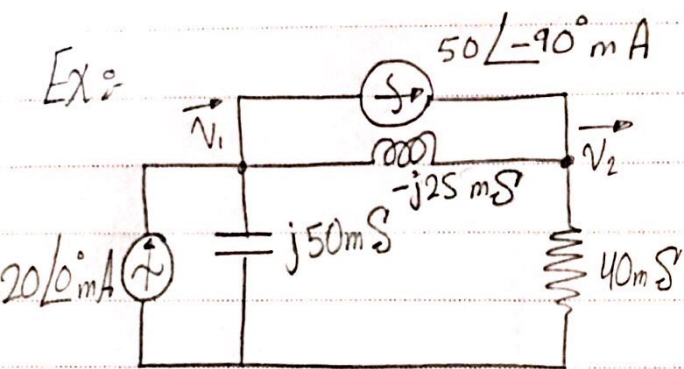 Ex:
50∠-90° mA
V₁
V₂
-j25 mS
20∠0° mA
j50mS
40mS